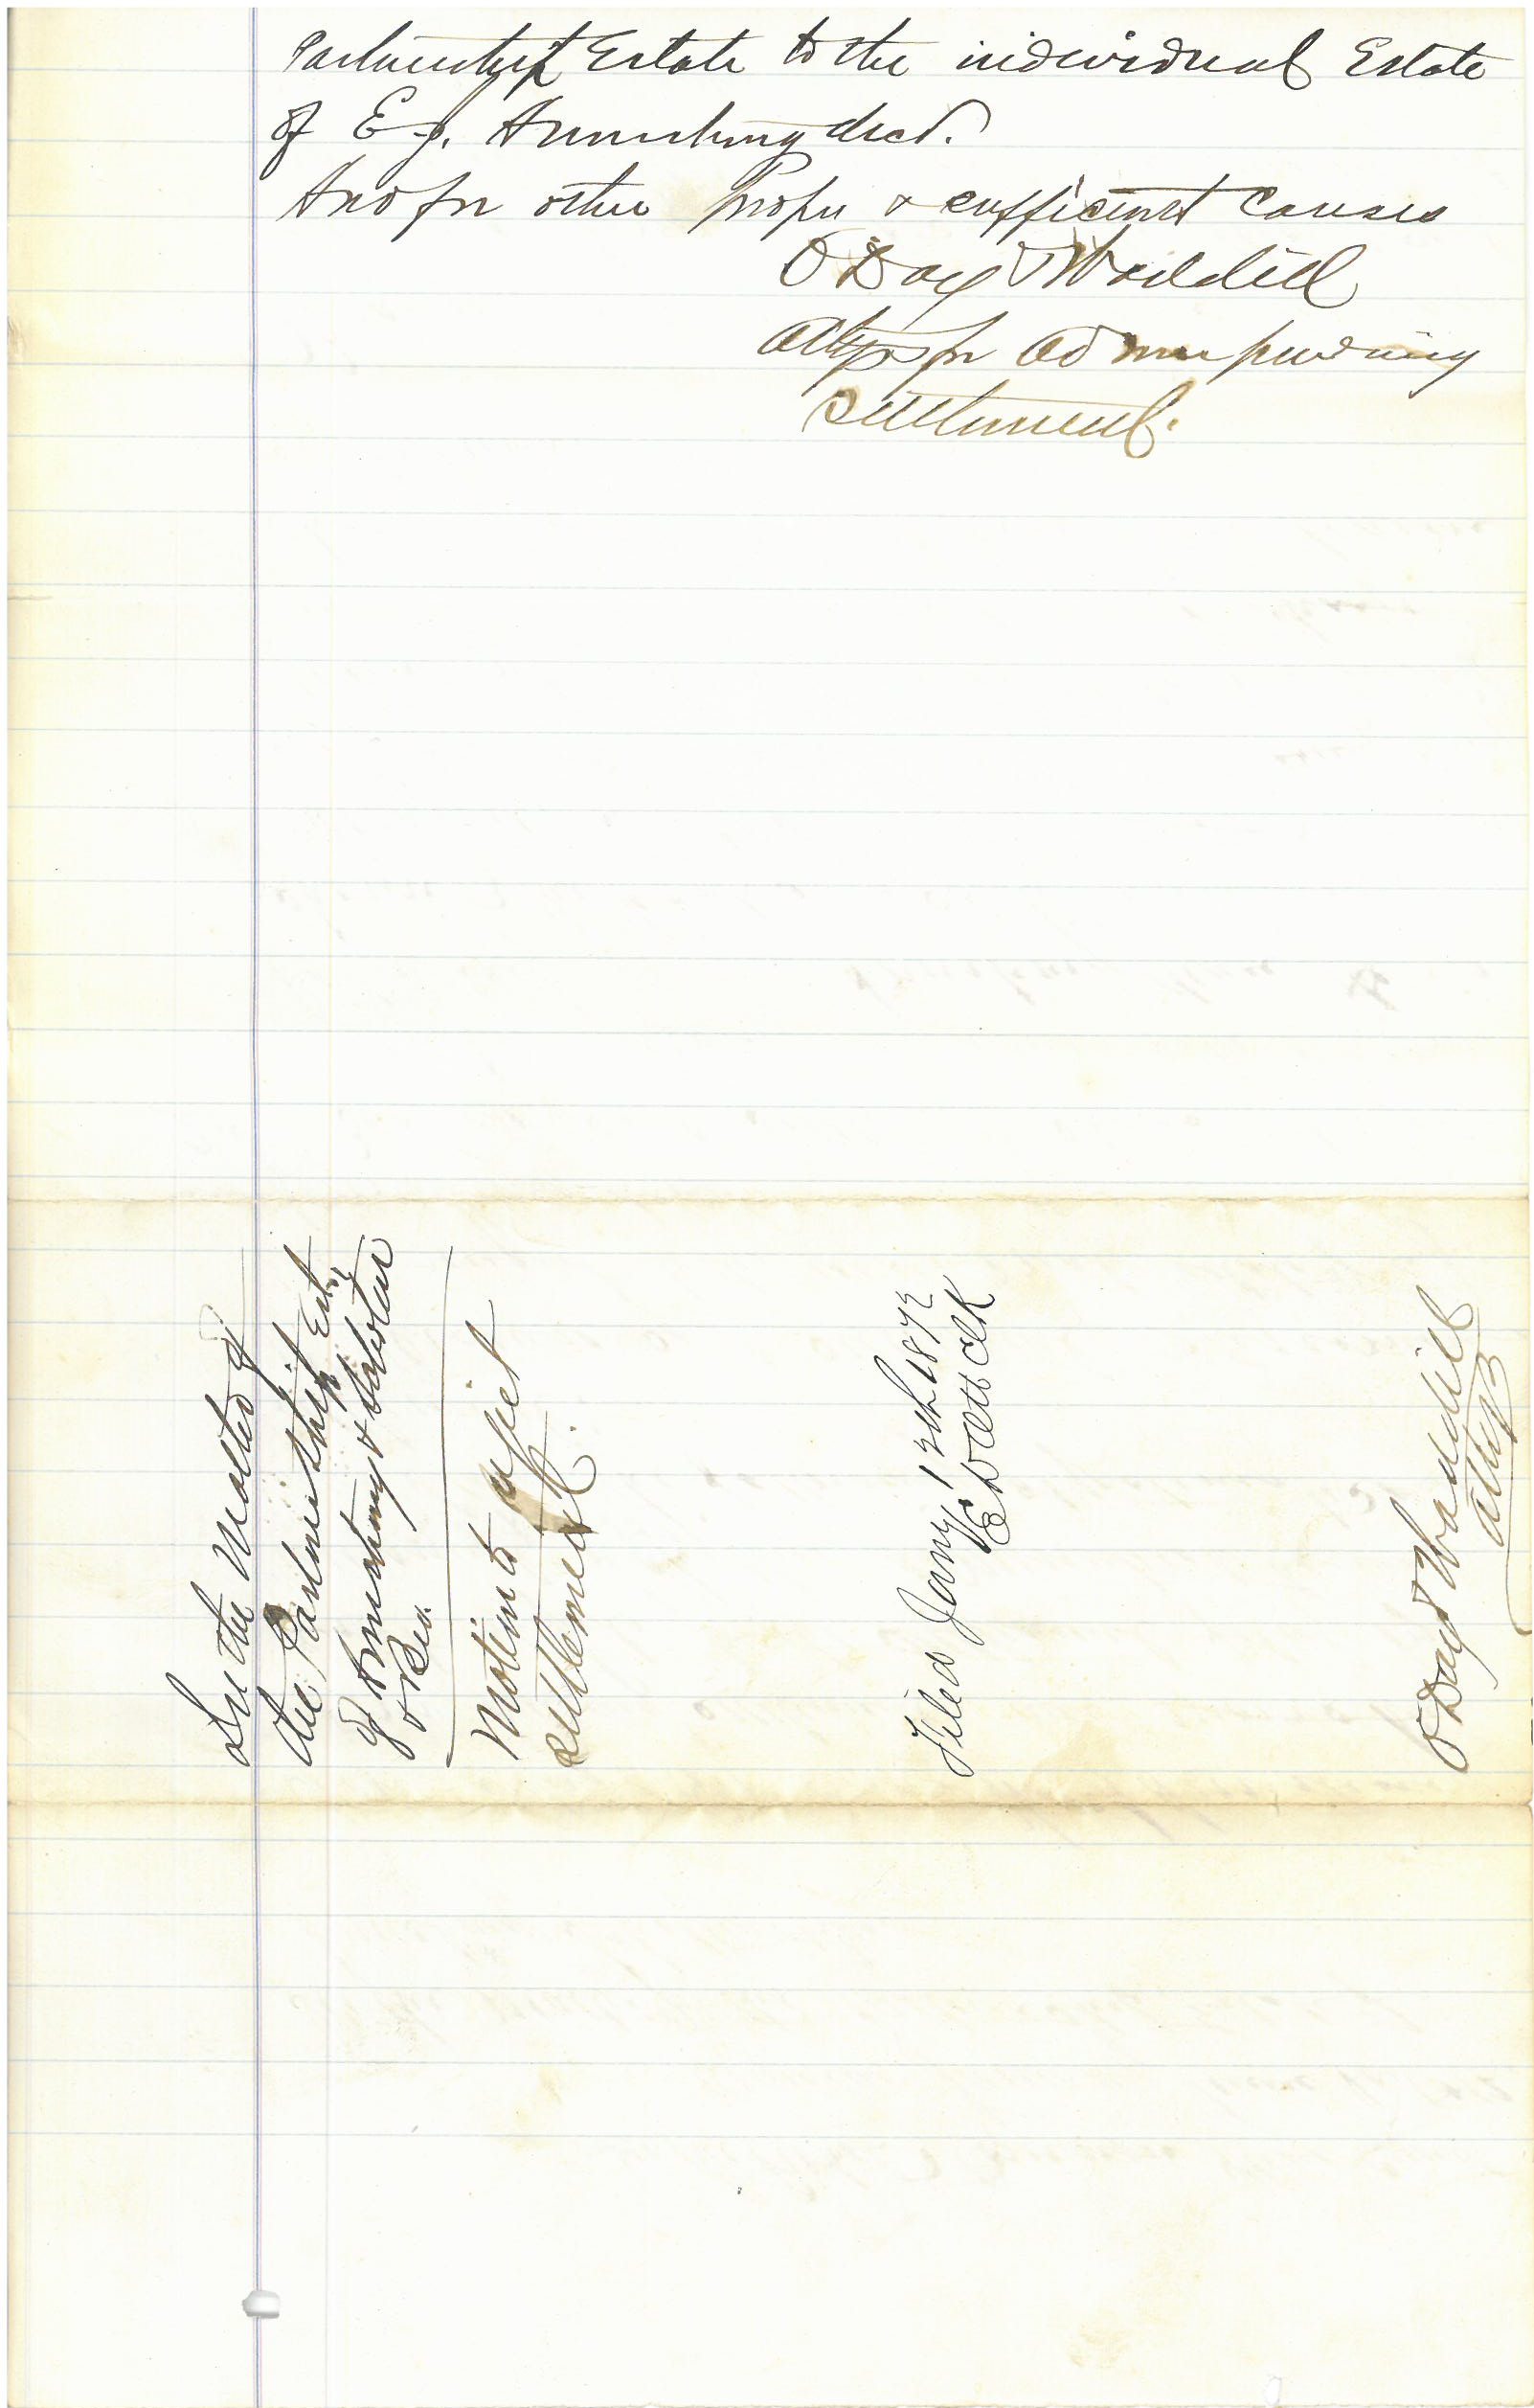 Partnership Estate to the individual Estate
of E. J. Armstrong decd.
And for other proper & sufficient causes
O'Day & Waddill
Attys for Admr pending
settlement.
In the Matter of
the Partnership Est.
of Armstrong &
& Bro.
Motion to reject
settlement.
Filed Jany 13th 1873
Clk
O'Day & Waddill
Attys